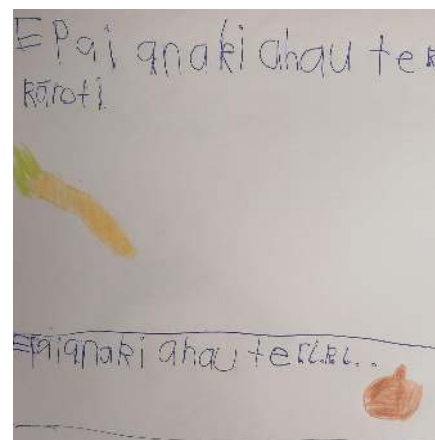 E Pai ana ki ahau te k
kāroti
E pai ana ki ahau te